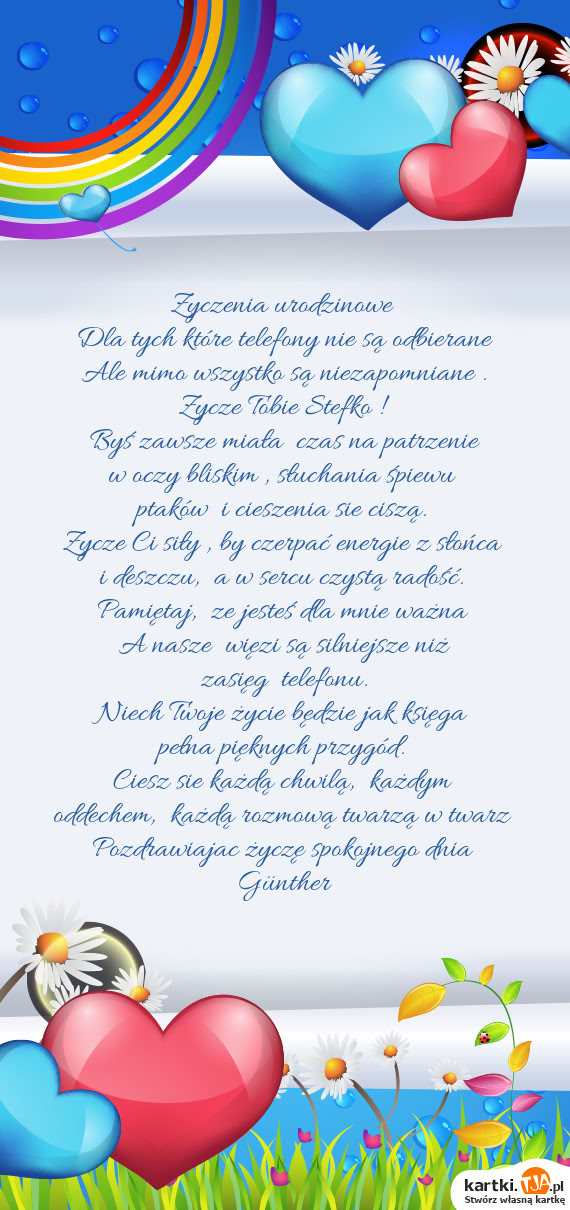 Zyczenia urodzinowe
Dla tych które telefony nie są odbierane
Ale mimo wszystko są niezapomniane .
Zycze Tobie Stefko !
Byś zawsze miała czas na patrzenie
w oczy bliskim , słuchania śpiewu
ptaków i cieszenia sie ciszą.
Zycze Ci siły , by czerpać energie z słońca
i deszczu, a w sercu czystą radość.
Pamiętaj, ze jesteś dla mnie ważna
A nasze więzi są silniejsze niż
zasięg telefonu.
Niech Twoje życie będzie jak księga
pełna pięknych przygód.
Ciesz sie każdą chwilą, każdym
oddechem, każdą rozmową twarzą w twarz
Pozdrawiajac życzę spokojnego dnia
Günther
kartki.TJA.pl
Stwórz własną kartkę